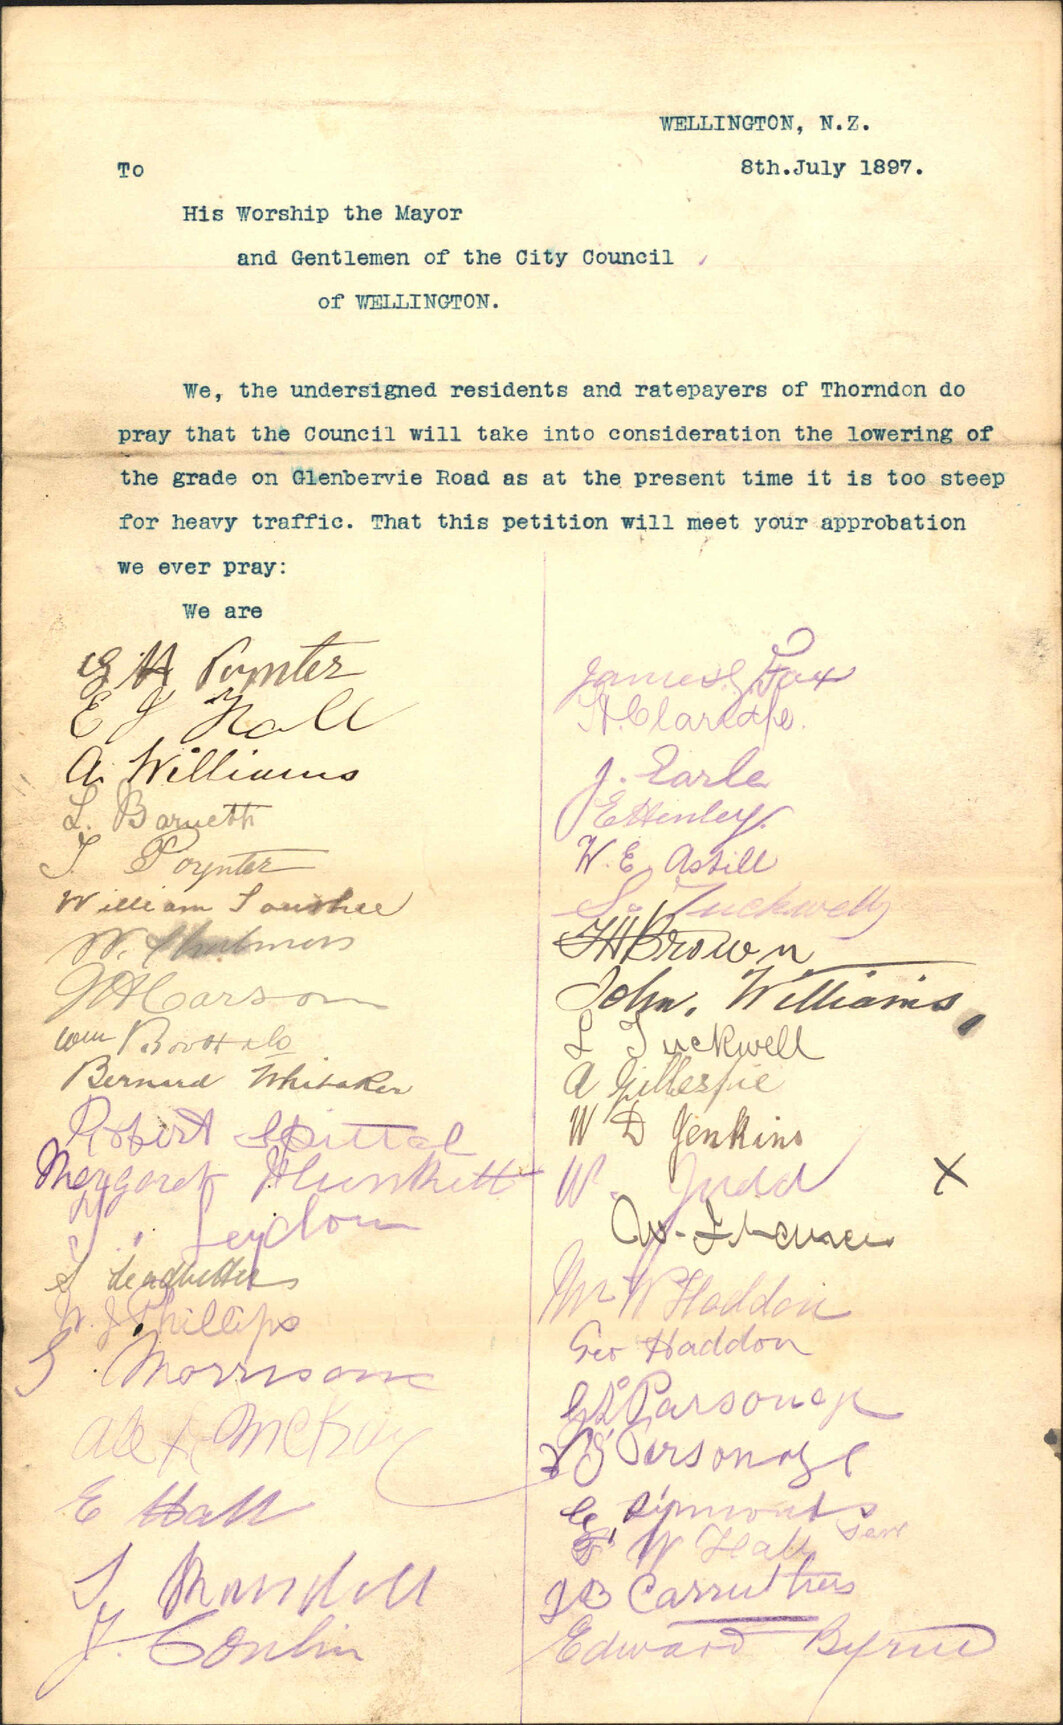 WELLINGTON, N.Z.
To
8th.July 1897.
His Worship the Mayor
and Gentlemen of the City Council
of WELLINGTON.
We, the undersigned residents and ratepayers of Thorndon do
pray that the Council will take into consideration the lowering of
the grade on Glenbervie Road as at the present time it is too steep
for heavy traffic. That this petition will meet your approbation
we ever pray:
We are
Poynter
E J Hall
A. Williams
L. Barnett
T. Poynter
William
W.
Carson
Wm Booth & Co
Bernard Whitaker
Robert Spittal
Margaret Plunkett
Leydon
Leadbetter
W. J Phillips
S Morrison
Alex McKay
E Hall
J. Conlin
James Fox
H. Claridge.
J. Earle
E Henley.
W. E. Astill
S. Tuckwell
Brown
John. Williams,
L Tuckwell
A Gillespie
W D Jenkins
W. Judd X
W.
Mr W Haddon
Geo Haddon
Parsonage
Parsonage
Simmonds
W Hall Senr
Carruthers
Edward Byrne